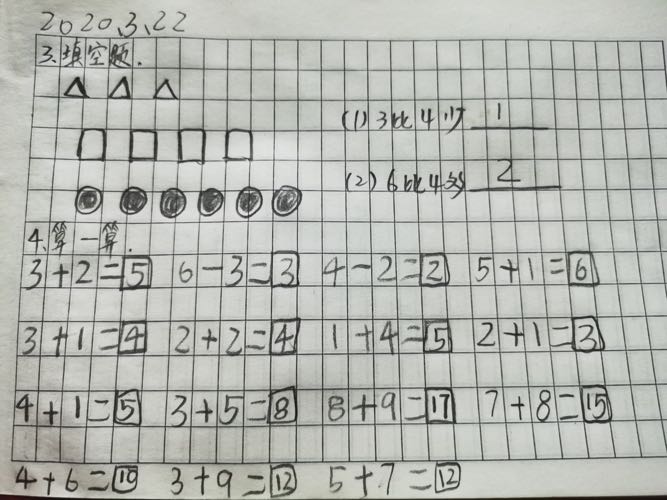 2020.3.22
3.填空题.
(1) 3比4少 1
(2) 6比4多 2
4.算一算.
3+2=5 6-3=3 4-2=2 5+1=6
3+1=4 2+2=4 1+4=5 2+1=3
4+1=5 3+5=8 8+9=17 7+8=15
4+6=10 3+9=12 5+7=12